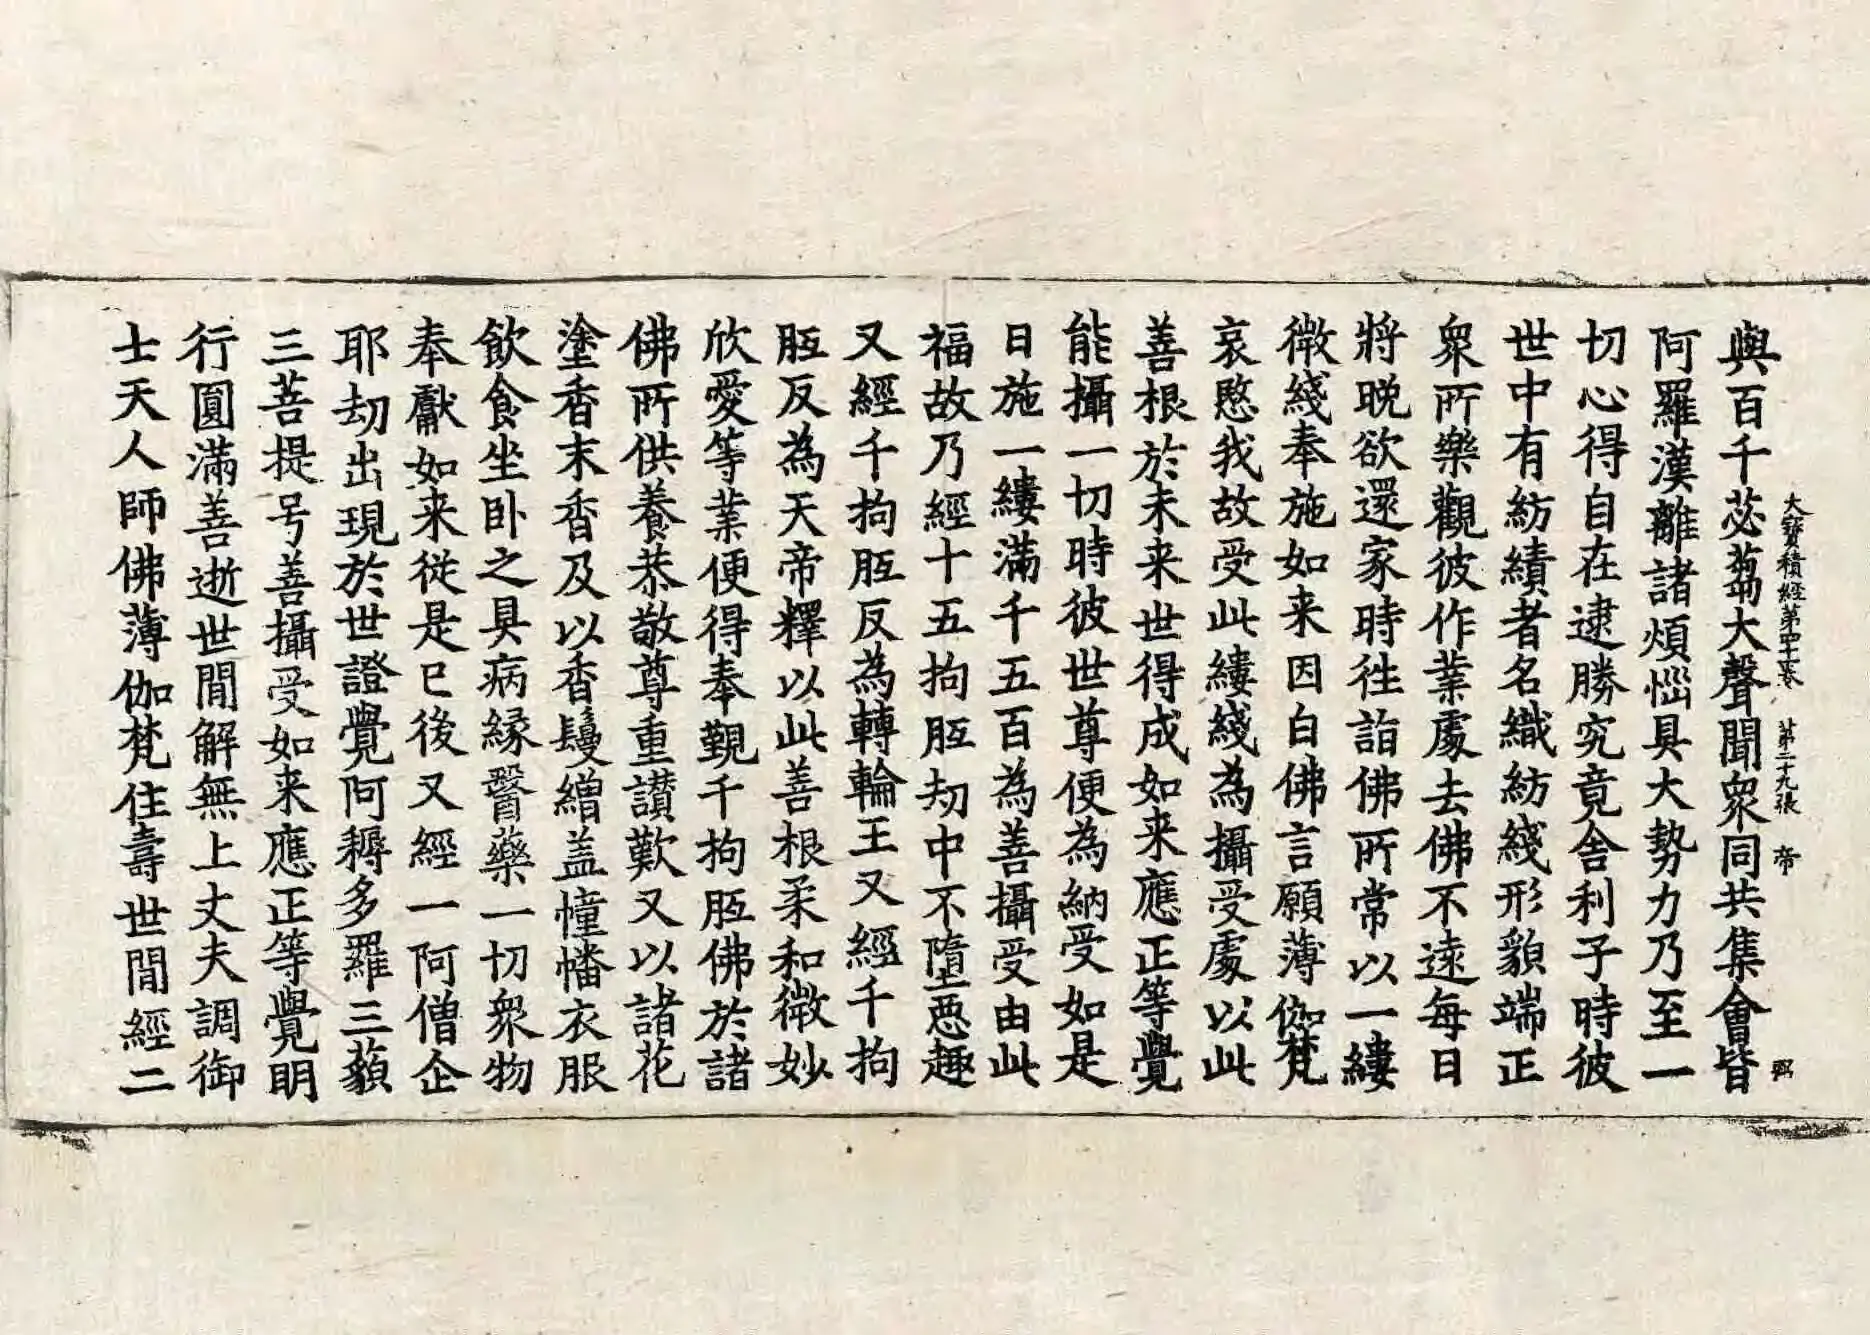 與百千苾芻大聲聞衆同共集會皆
大寶積經第四十一卷 第二十九張 帝
阿羅漢離諸煩惱具大勢力乃至一
切心得自在逮勝究竟舎利子時彼
世中有紡績者名織紡綫形貌端正
衆所樂觀彼作業處去佛不遠每日
將晚欲還家時往詣佛所常以一縷
微綫奉施如来因白佛言願薄伽梵
哀愍我故受此縷綫為攝受處以此
善根於未来世得成如来應正等覺
能攝一切時彼世尊便為納受如是
日施一縷滿千五百為善攝受由此
福故乃經十五拘胝劫中不墮惡趣
又經千拘胝反為轉輪王又經千拘
胝反為天帝釋以此善根柔和微妙
欣愛等業便得奉覲千拘胝佛於諸
佛所供養恭敬尊重讃歎又以諸花
塗香末香及以香鬘繒盖幢幡衣服
飲食坐卧之具病緣醫藥一切衆物
奉獻如来從是已後又經一阿僧企
耶劫出現於世證覺阿耨多羅三藐
三菩提号善攝受如来應正等覺明
行圓滿善逝世間解無上丈夫調御
士天人師佛薄伽梵住壽世間經二